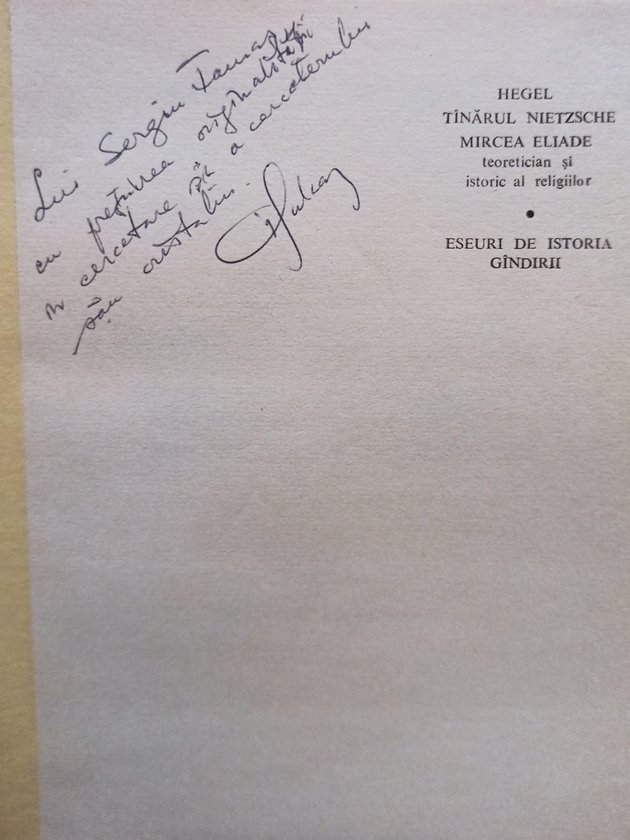 Lui Sergiu Tamaș
cu prețuirea originalității
în cercetare și a caracterului
său cristalin.
HEGEL
TÎNĂRUL NIETZSCHE
MIRCEA ELIADE
teoretician și
istoric al religiilor
•
ESEURI DE ISTORIA
GÎNDIRII